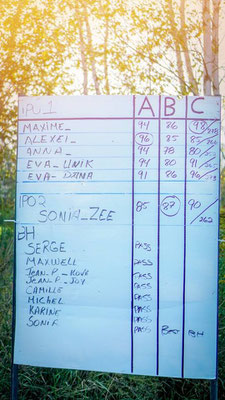 IPO_1 A B C
MAXIME_ 94 86 98
ALEXEI_ 96 85 85
ANNA_ 94 78 80
EVA_UNIK 94 80 91
EVA_DJINA 91 86 96
IPO2
SONIA_ZEE 85 87 90/262
BH
SERGE PASS
MAXWELL PASS
JEAN-P_KOVE PASS
JEAN-P_JOY PASS
CAMILLE PASS
MICHEL PASS
KARINE PASS
SONIA PASS BH